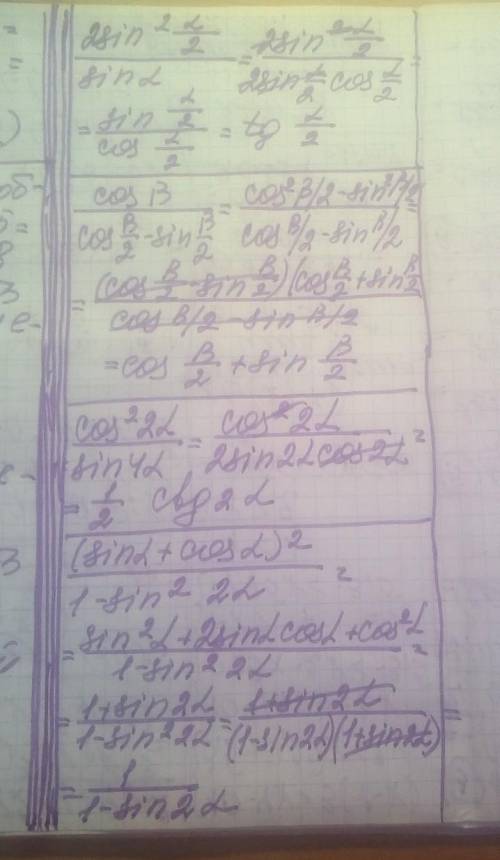 2sin² α/2 / sin α = 2sin² α/2 / 2sin α/2 cos α/2 =
= sin α/2 / cos α/2 = tg α/2
cos β / cos β/2 - sin β/2 = cos² β/2 - sin² β/2 / cos β/2 - sin β/2 =
= (cos β/2 - sin β/2)(cos β/2 + sin β/2) / cos β/2 - sin β/2
= cos β/2 + sin β/2
cos² 2α / sin 4α = cos² 2α / 2sin 2α cos 2α =
= 1/2 ctg 2α
(sin α + cos α)² / 1 - sin² 2α =
= sin² α + 2sin α cos α + cos² α / 1 - sin² 2α =
= 1 + sin 2α / 1 - sin² 2α = 1 + sin 2α / (1 - sin 2α)(1 + sin 2α) =
= 1 / 1 - sin 2α